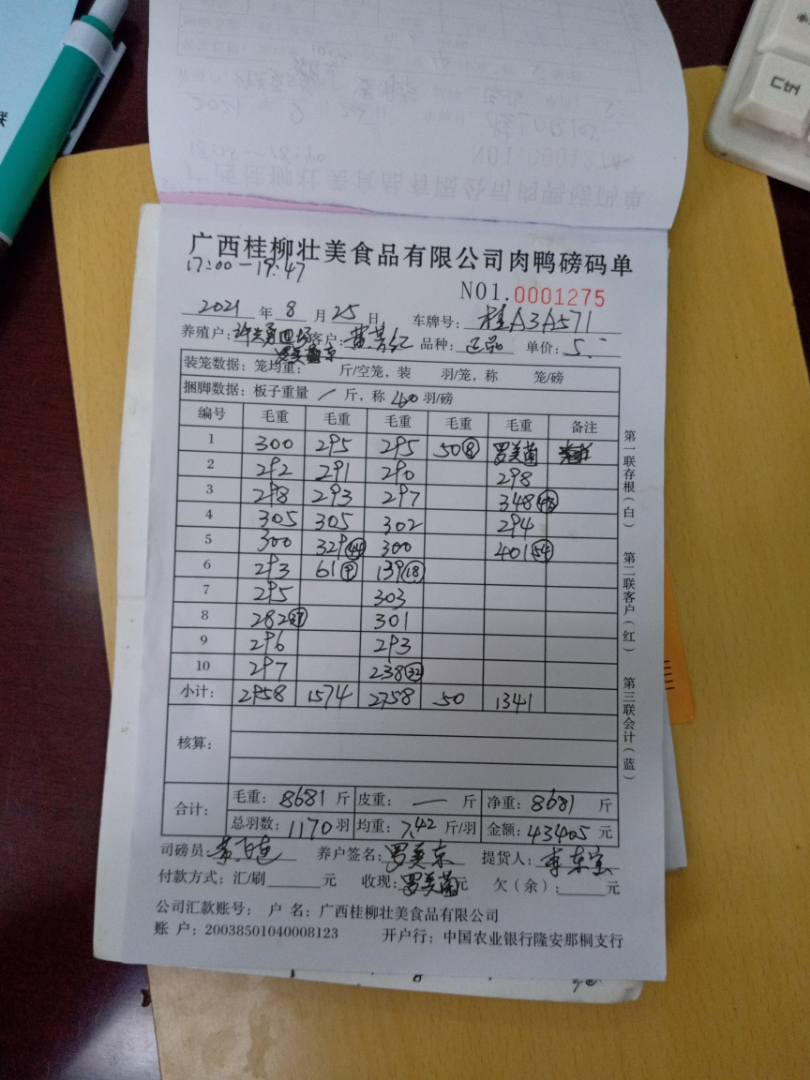 广西桂柳壮美食品有限公司肉鸭磅码单
17:00-19:47
NO1.0001275
2021年8月25日 车牌号:桂A3A571
养殖户: 客户: 品种:正品 单价:5.
装笼数据:笼均重: 斤/空笼,装 羽/笼,称 笼/磅
捆脚数据:板子重量 / 斤,称 羽/磅
编号 毛重 毛重 毛重 毛重 毛重 备注
1 300 295 295 50⑧ 罗美菌
2 292 291 290 298
3 298 293 297 348㊽
4 305 305 302 294
5 300 329㊹ 300 401(54)
6 293 61⑨ 139⑱
7 295 303
8 282㊲ 301
9 296 293
10 297 238㉜
小计: 2958 1574 2758 50 1341
核算:
合计: 毛重:8681斤 皮重:—斤 净重:8681斤
总羽数:1170羽 均重:7.42斤/羽 金额:43405元
司磅员: 养户签名:罗美京 提货人:李东宝
付款方式:汇/刷 元 收现:罗美菌元 欠(余): 元
公司汇款账号: 户 名:广西桂柳壮美食品有限公司
账 户:20038501040008123 开户行:中国农业银行隆安那桐支行
第一联存根(白)
第二联客户(红)
第三联会计(蓝)